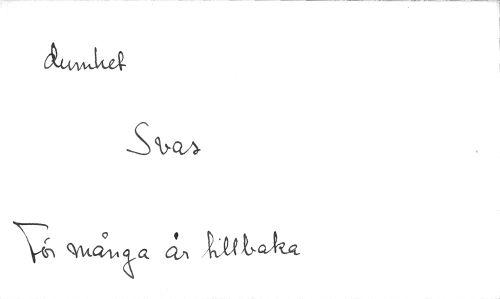 dumhet
Svas
För många år tillbaka